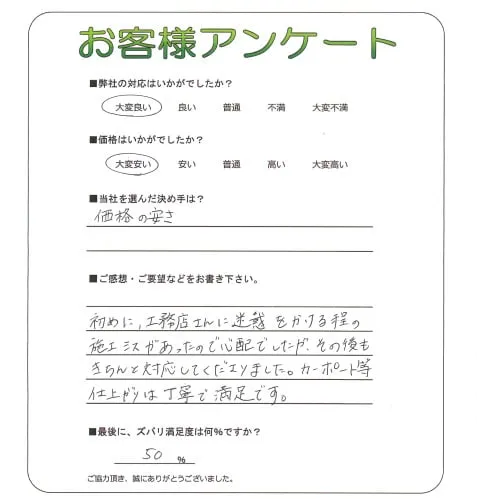 お客様アンケート
■弊社の対応はいかがでしたか？
大変良い 良い 普通 不満 大変不満
■価格はいかがでしたか？
大変安い 安い 普通 高い 大変高い
■当社を選んだ決め手は？
価格の安さ
■ご感想・ご要望などをお書き下さい。
初めに、工務店さんに迷惑をかける程の
施工ミスがあったので心配でしたが、その後も
きちんと対応してくださりました。カーポート等
仕上がりは丁寧で満足です。
■最後に、ズバリ満足度は何％ですか？
50 ％
ご協力頂き、誠にありがとうございました。